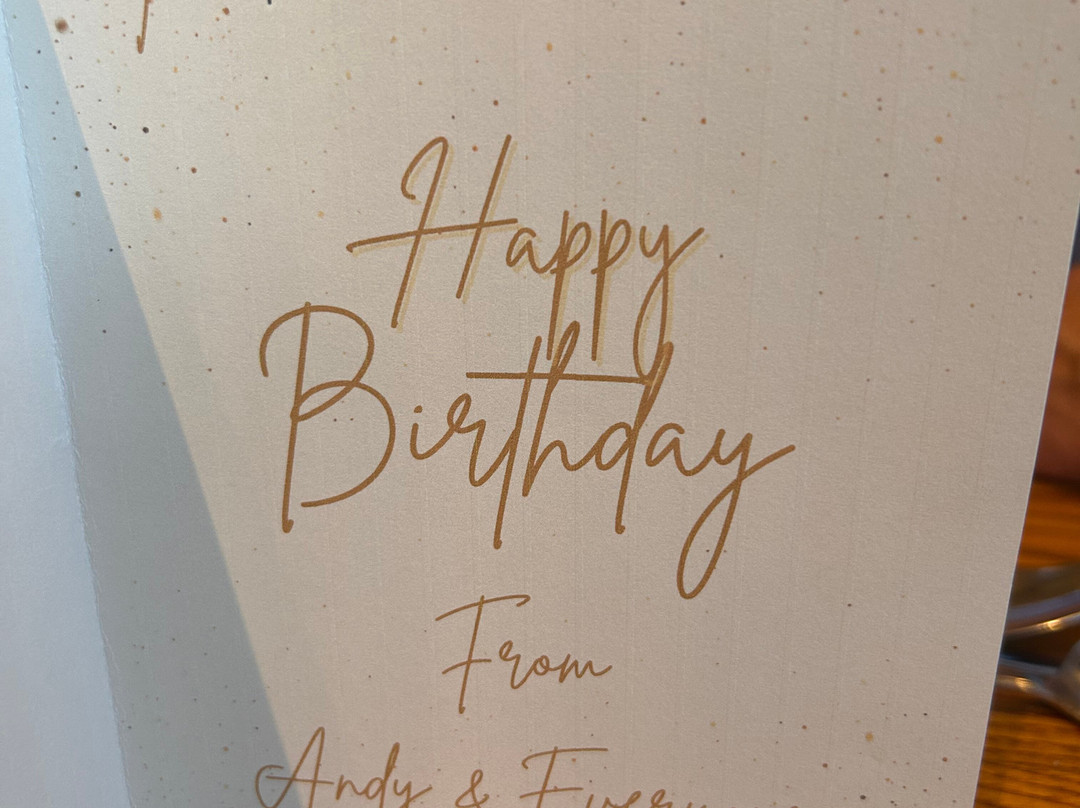 Happy
Birthday
From
Andy &